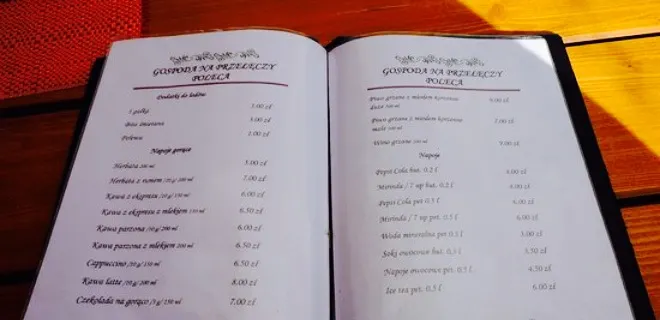 GOSPODA NA PRZEŁĘCZY
POLECA
Dodatki do lodów
1 gałka 3.00 zł
Bita śmietana 3.00 zł
Polewa 1.00 zł
Napoje gorące
Herbata 200 ml 5.00 zł
Herbata z rumem /10 g/ 200 ml 7.00 zł
Kawa z ekspresu /10 g/ 200 ml 6.00 zł
Kawa z ekspresu z mlekiem 150 ml 6.50 zł
Kawa parzona /10 g/ 200 ml 6.00 zł
Kawa parzona z mlekiem 200 ml 6.50 zł
Cappuccino /10 g/ 150 ml 6.50 zł
Kawa latte /10 g/ 200 ml 8.00 zł
Czekolada na gorąco /3 g/ 150 ml 7.00 zł
GOSPODA NA PRZEŁĘCZY
POLECA
Piwo grzane z miodem korzenne 9.00 zł
duże 500 ml
Piwo grzane z miodem korzenne 7.00 zł
małe 300 ml
Wino grzane 200 ml zł
Napoje
Pepsi Cola but. 0,2 l zł
Mirinda / 7 up but. 0,2 l zł
Pepsi Cola pet 0.5 l 6.00 zł
Mirinda / 7 up pet. 0.5 l 6.00 zł
Woda mineralna pet 0.5 l zł
Soki owocowe but. 0,3 l 5.50 zł
Napoje owocowe pet. 0.5 l 4.50 zł
Ice tea pet. 0.5 l 6.00 zł